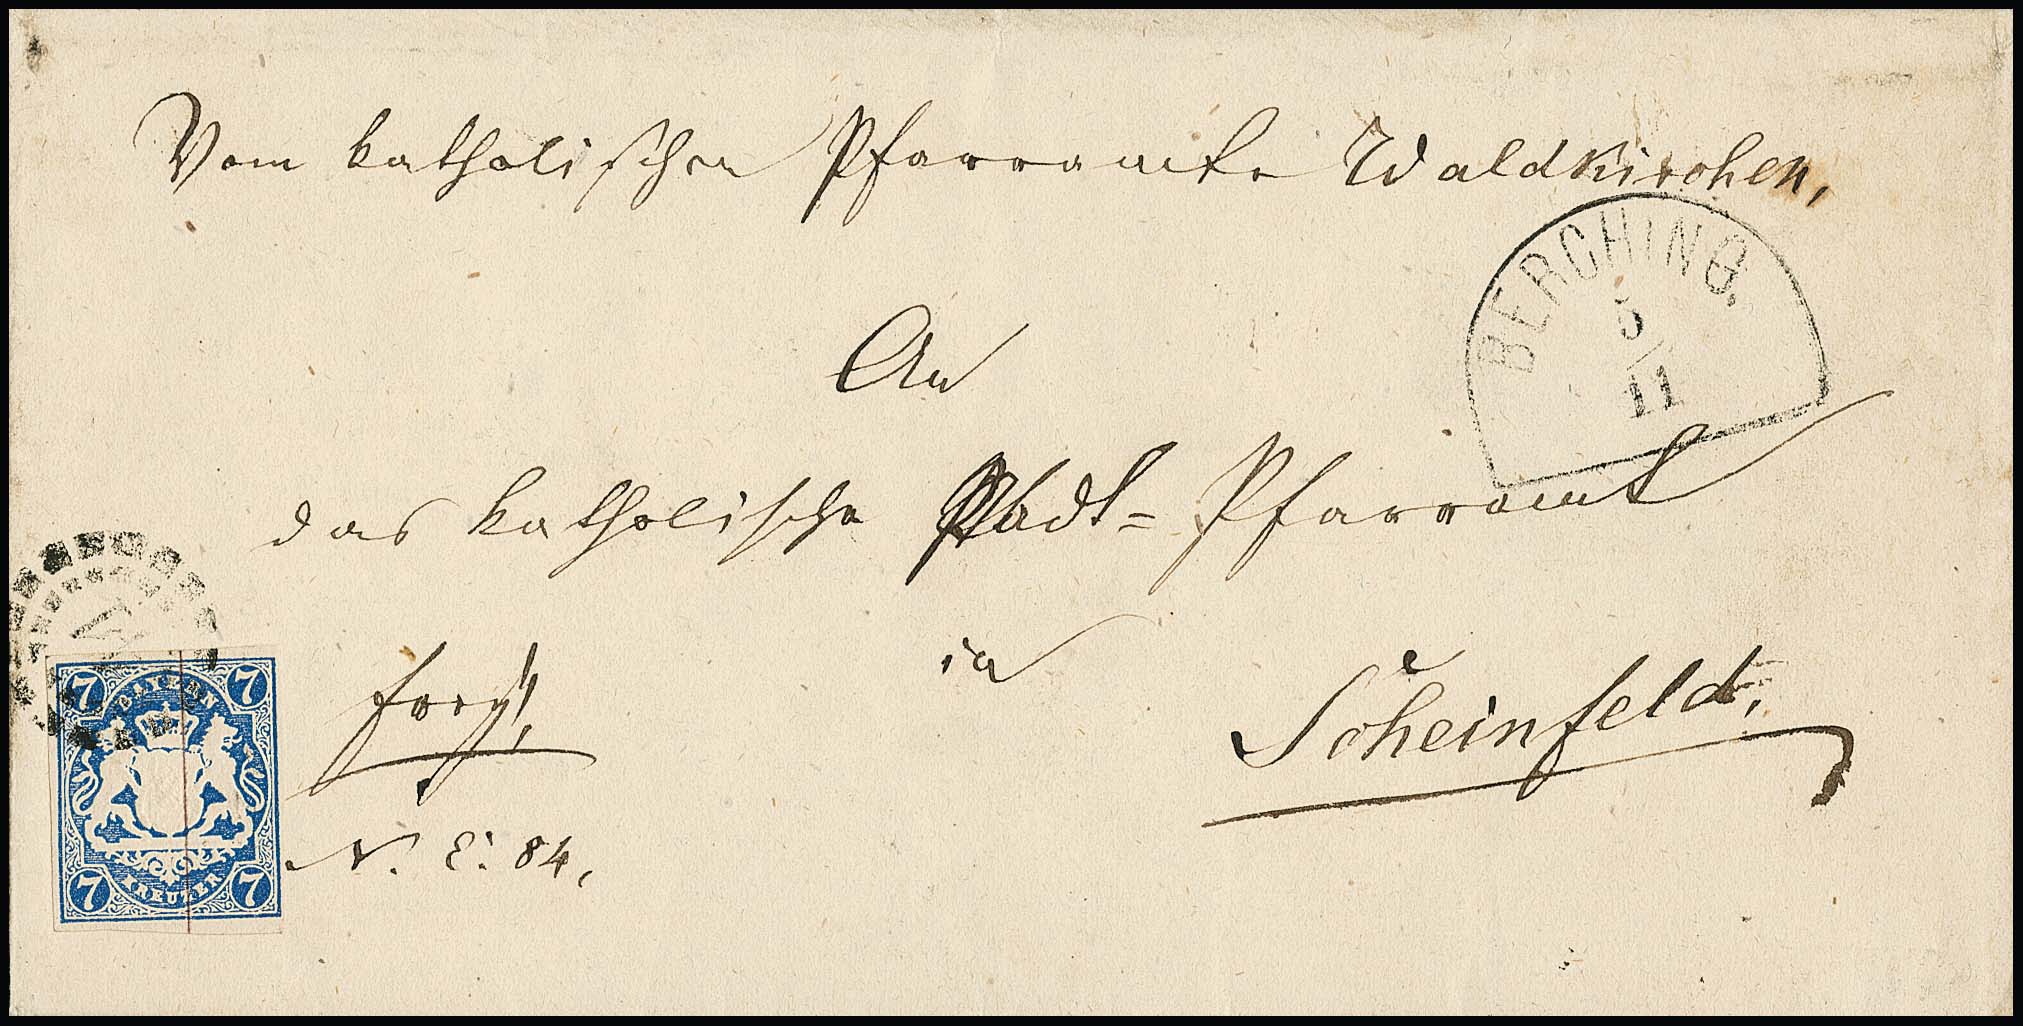 Vom katholischen Pfarramte Waldkirchen,
BERCHING.
5/11
An
das katholische Stadt-Pfarramt
in
Scheinfeld,
N. E. 84,
7 7
BAYERN
KREUZER
7 7